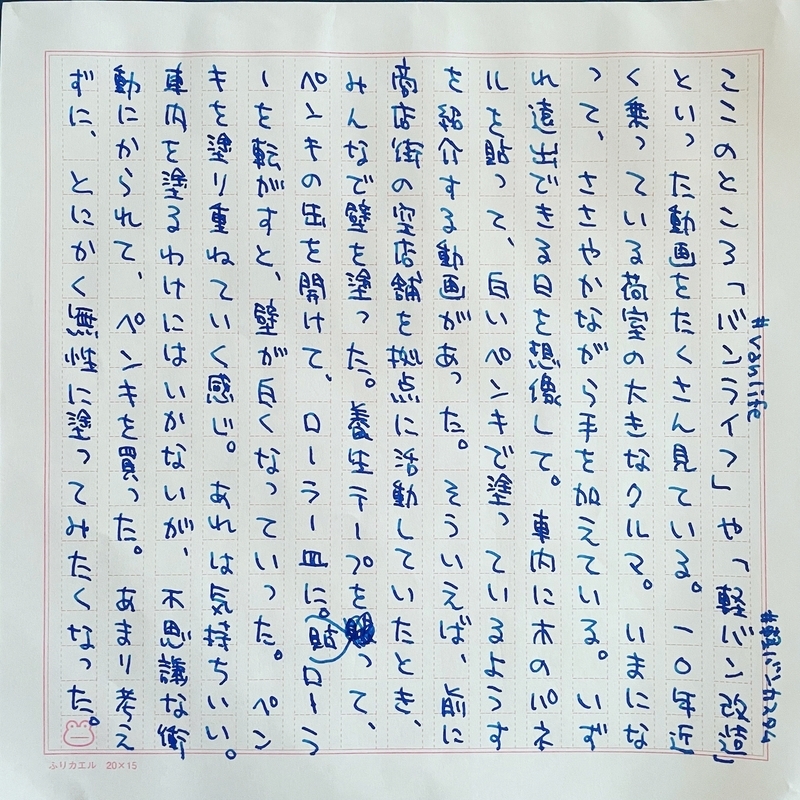 ここのところ「バンライフ」や「軽バン改造」
#vanlife
#軽バンカスタム
といった動画をたくさん見ている。一〇年近
く乗っている荷室の大きなクルマ。いまにな
って、ささやかながら手を加えている。いず
れ遠出できる日を想像して。車内に木のパネ
ルを貼って、白いペンキで塗っているようす
を紹介する動画があった。そういえば、前に
商店街の空店舗を拠点に活動していたとき、
みんなで壁を塗った。養生テープを貼って、
ペンキの缶を開けて、ローラー皿に。ローラ
ーを転がすと、壁が白くなっていった。ペン
キを塗り重ねていく感じ。あれは気持ちいい。
車内を塗るわけにはいかないが、不思議な衝
動にかられて、ペンキを買った。あまり考え
ずに、とにかく無性に塗ってみたくなった。
ふりカエル 20×15